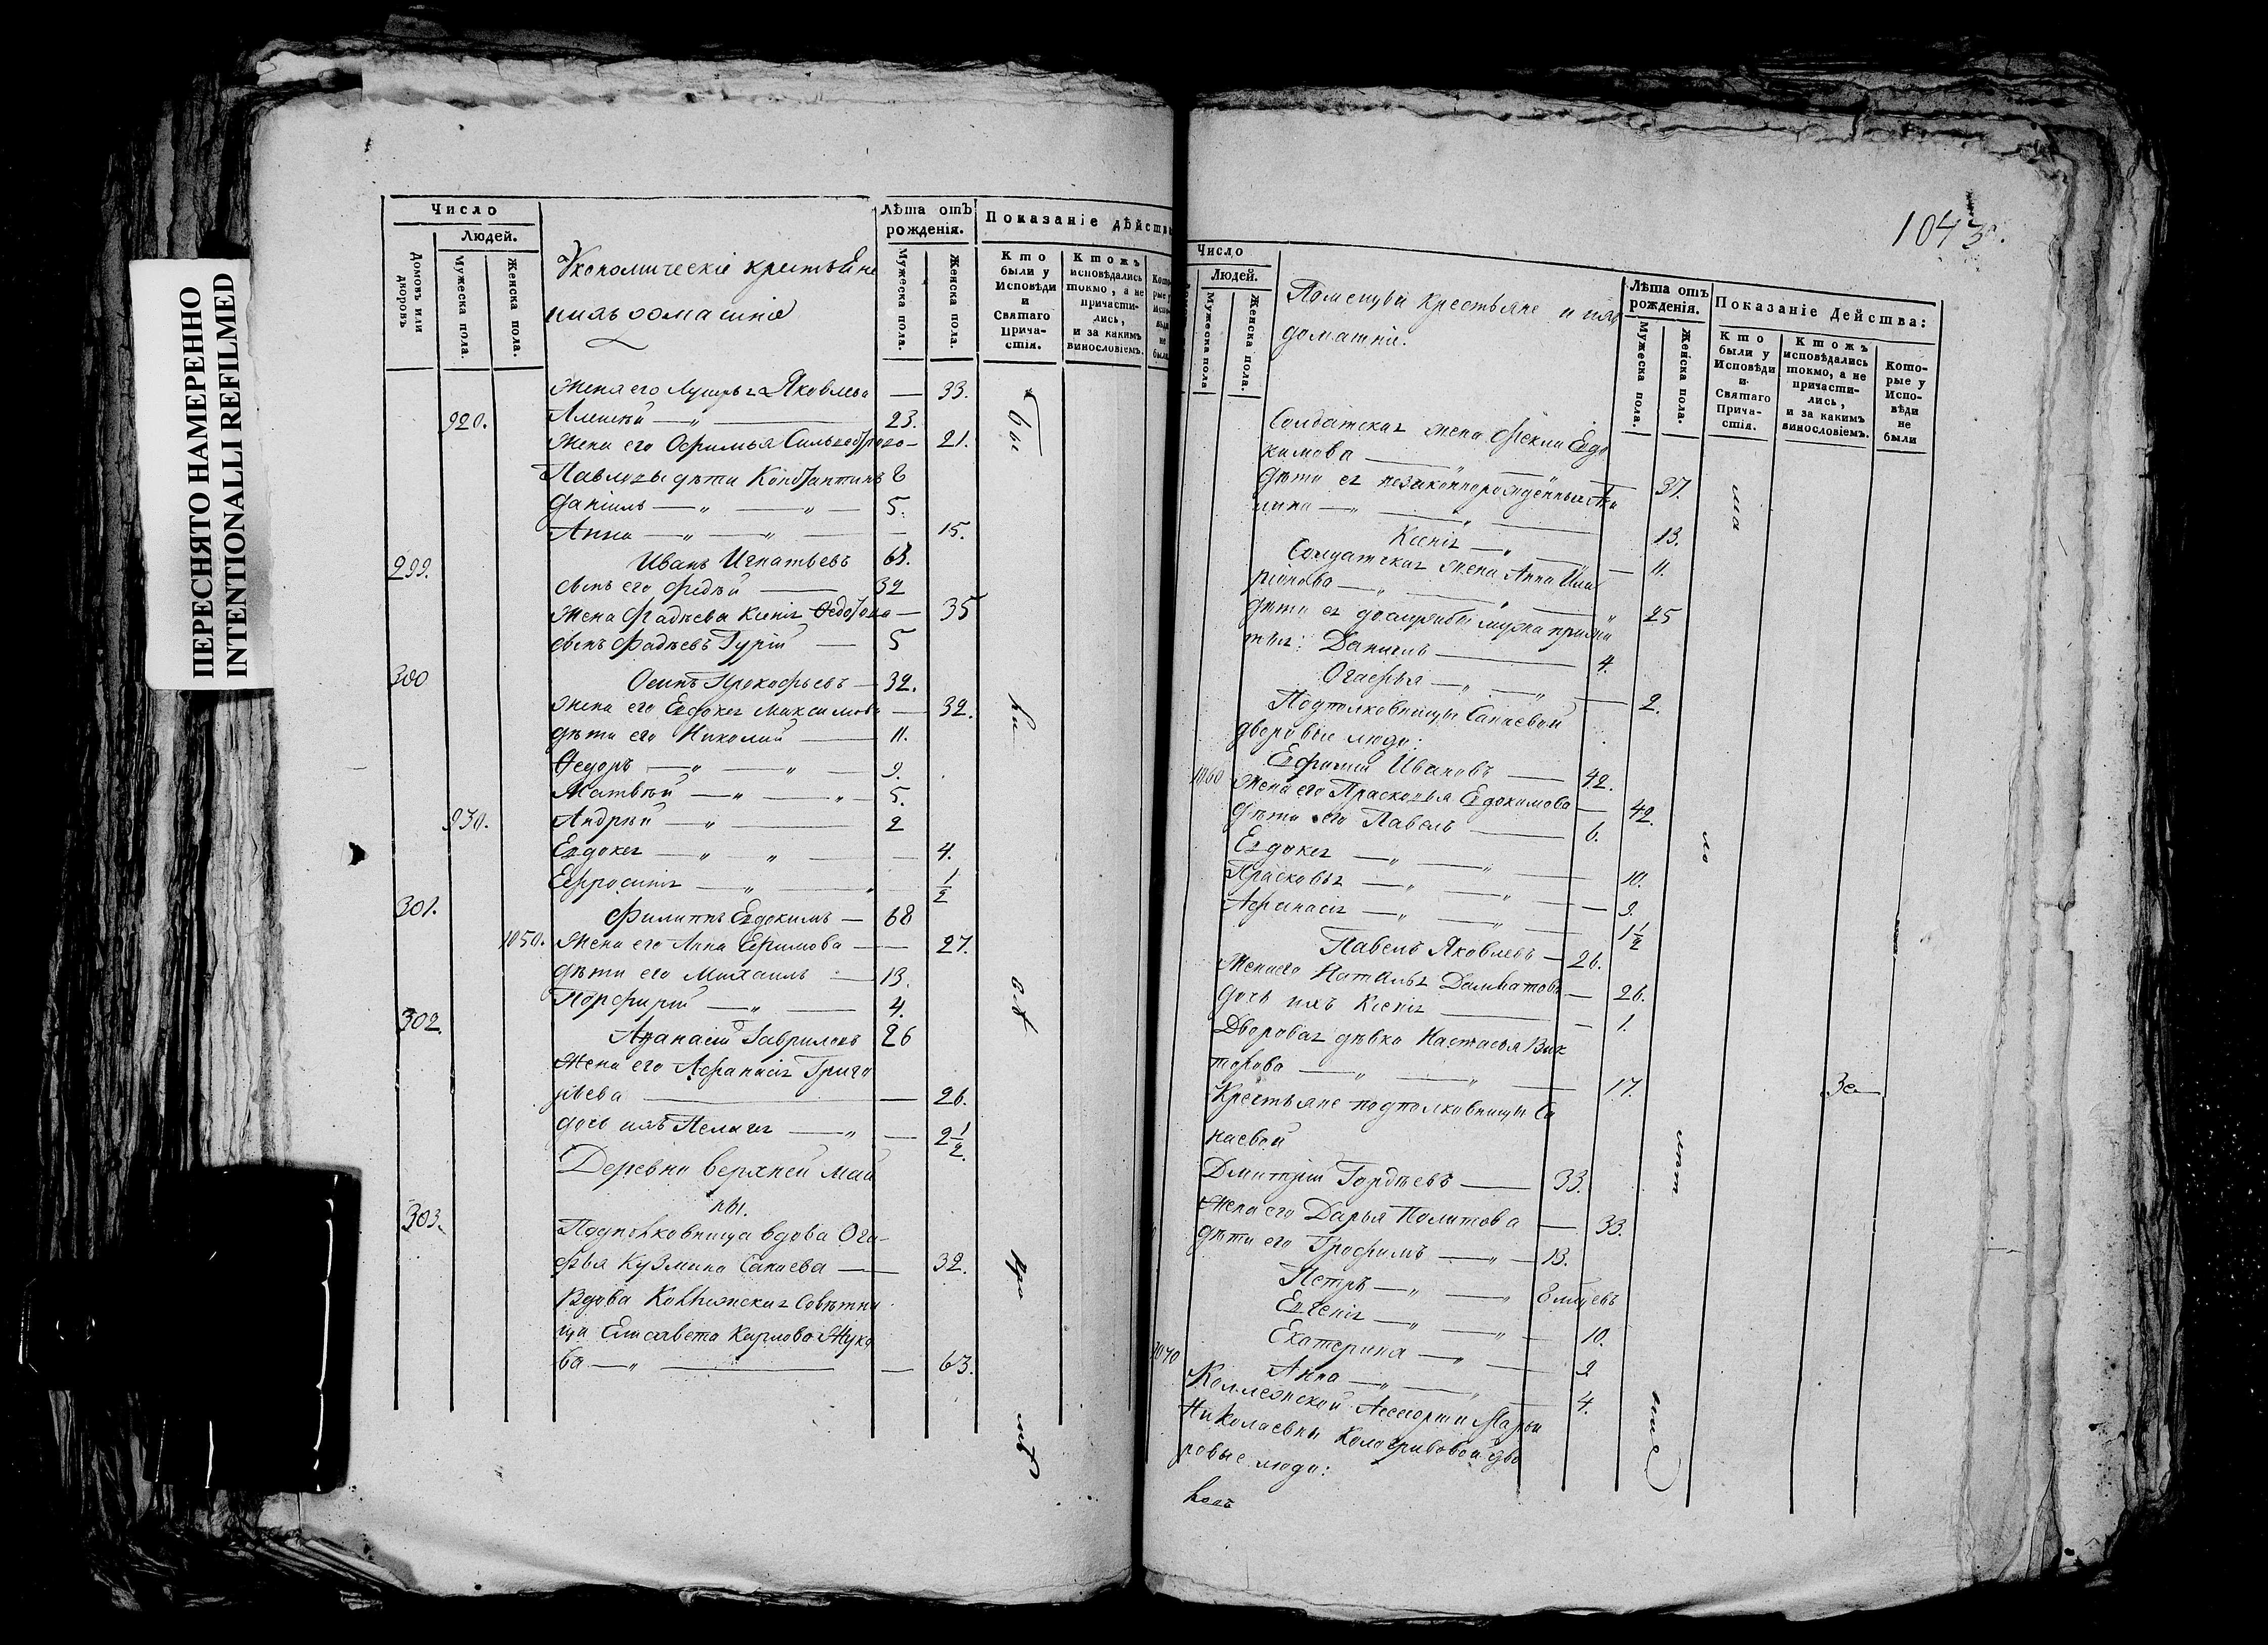 ПЕРЕСНЯТО НАМЕРЕННО
INTENTIONALLI REFILMED
Число
Людей.
Домовъ или дворовъ.
Мужеска пола.
Женска пола.
Экономическіе крестьяне
и ихъ домашніе
Лѣта отъ рожденія.
Мужеска пола.
Женска пола.
Показаніе дѣйств
Кто были у Исповѣди и Святаго Причастія.
Ктожъ исповѣдались токмо, а не причастились, и за какимъ винословіемъ.
Жена его Яковлева — 33.
920. Алексѣй — „ — 23.
Жена его — 21.
Павловы дѣти Константинъ 8
Даніилъ — „ — „ — 5.
Анна — „ — „ — 15.
299. Иванъ Игнатьевъ 63.
сынъ его Фадѣй — 32
Жена Фадѣева Ксенія Федотова — 35
сынъ Фадѣевъ Гурій — 5
300 Осипъ Прокофьевъ — 32.
Жена его Евдокея Максимова — 32.
дѣти его Николай — 11.
Федоръ — „ — „ — 9.
Матвѣй — „ — „ — 5.
930. Андрѣй — „ — 2
Евдокея — „ — „ — 4.
Ефросинія — „ — „ — 1/2
301. Филиппъ Евдокимъ — 68
1050. Жена его Анна Ефимова — 27.
дѣти его Михаилъ — 13.
Порфирій — „ — 4.
302. Афанасій Гавриловъ 26
Жена его Афанасія Григо
рьева — 26.
дочь ихъ Пелагея — „ — 2 1/2.
Деревни Верхней Май
ны.
303. Подполковница вдова Ога-
фья Кузмина Сапаева — 32.
Вдова Коллежская Совѣтни
ца Елисавета Карлова Жуко
ва — „ — 63.
бы
ли
всѣ
1043.
Число
Людей.
Мужеска пола
Женска пола.
Помещичьи крестьяне и ихъ
домашніе.
Лѣта отъ рожденія.
Мужеска пола.
Женска пола.
Показаніе Дѣйства:
Кто были у Исповѣди и Святаго Причастія.
Ктожъ исповѣдались токмо, а не причастились, и за какимъ винословіемъ.
Которые у Исповѣди не были
Солдатская жена Фекла Евдо
кимова — „ — 37.
дѣти ея незаконнорожденныя
— „ — „ — 13.
Ксенія — „ — 11.
Солдатская жена Анна Ила
ріонова — „ — „ — 25
дѣти ея до службы мужа прижи
тыя: Даниилъ — 4.
Огафья — „ — „ — 2.
Подполковницы Сапаевой
дворовые люди:
Ефимій Ивановъ — 42.
1060 Жена его Прасковья Евдокимова — 42.
дѣти его Павелъ — 6.
Евдокея — „ — „ — 10.
Прасковья — „ — „ — 9.
Афанасія — „ — „ — 1 1/2
Павелъ Яковлевъ — 26.
Жена его Наталья Далматова — 26.
дочь ихъ Ксенія — 1.
Дворовая дѣвка Настасья Вик
торова — „ — „ — 17.
Крестьяне подполковницы Са
паевой
Дмитрій Гордѣевъ — 33.
Жена его Дарья Политова — 33.
дѣти его Трофимъ — „ — 13.
Петръ — „ — „ 8 мцевъ
Евгенія — „ — „ — 10.
1070 Екатерина — „ — 9
Анна — „ — „ — 4.
Коллежской Ассесорши Марьи
Николаевны Кологривовой дво
ровые люди: